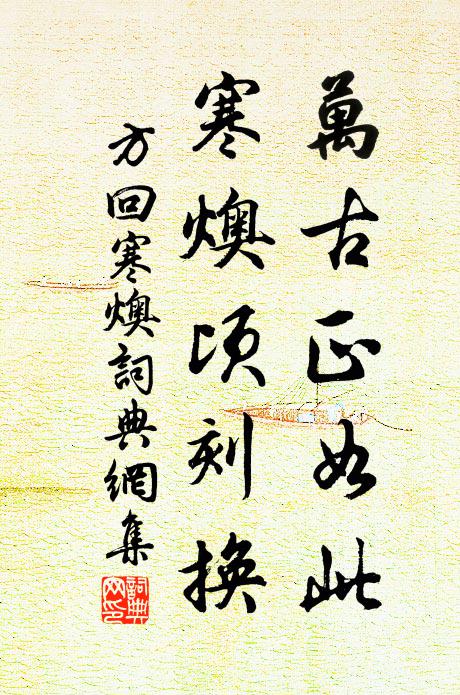 萬古正如此
寒燠頃刻換
方回寒燠詞典網集
詞典
网印